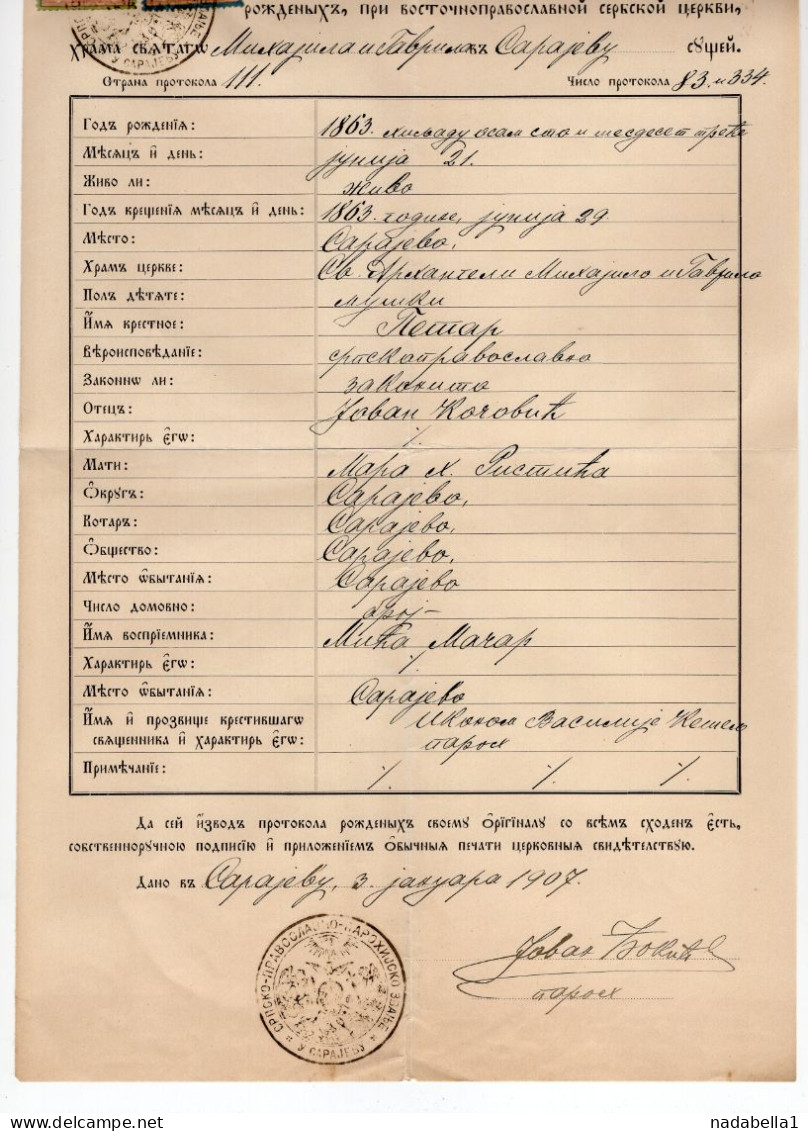 рожденыхъ, при восточноправославной сербской церкви,
Храма свѧтагѡ Михајила и Гаврила въ Сарајеву сꙋщей.
Страна протокола 111. Число протокола 83. и 334.
Годъ рожденїѧ: 1863. хиљаду осам сто и шесдесет треће
Мѣсѧцъ и҆ день: јунија 21.
Живо ли: живо
Годъ крещенїѧ мѣсѧцъ и҆ день: 1863. године, јунија 29.
Мѣсто: Сарајево,
Храмъ церкве: Св. Архангели Михајило и Гаврило
Полъ дѣтѧте: мушки
И҆мѧ крестное: Петар
Вѣроисповѣданїе: српскоправославно
Законнѡ ли: законито
Отецъ: Јован Кочовић
Характиръ є҆гѡ: ⁒
Мати: Мара х. Ристића
Ѻ҆кругъ: Сарајево,
Котаръ: Сарајево,
Ѻ҆бщество: Сарајево,
Мѣсто ѡ҆бытанїѧ: Сарајево
Число домовно: број –
И҆мѧ воспрїемника: Мића Мачар
Характиръ є҆гѡ: ⁒
Мѣсто ѡ҆бытанїѧ: Сарајево
И҆мѧ и҆ прозвище крестившагѡ Иконом Василије
свѧщенника и҆ характиръ є҆гѡ: парох
Примѣчанїе: ⁒ ⁒ ⁒
Да сей и҆зводъ протокола рожденыхъ своему ѻ҆рїгїналу со всѣмъ сходенъ є҆сть,
собственнорꙋчною подписїю и҆ приложенїемъ ѻ҆бычныѧ печати церковныѧ свидѣтелствꙋю.
Дано въ Сарајеву, 3. јануара 1907.
СРПСКО-ПРАВОСЛАВНО-ПАРОХИЈСКО ЗВАЊЕ
У САРАЈЕВУ
Јован Ђокић
парох
www.delcampe.net
nadabella1